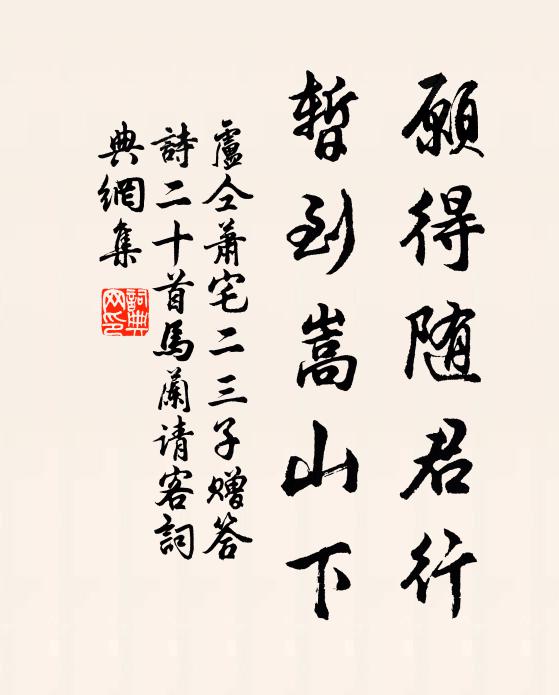 願得随君行
暫到嵩山下
盧仝萧宅二三子赠答
詩二十首馬蘭请客詞
典網集
詞典網印